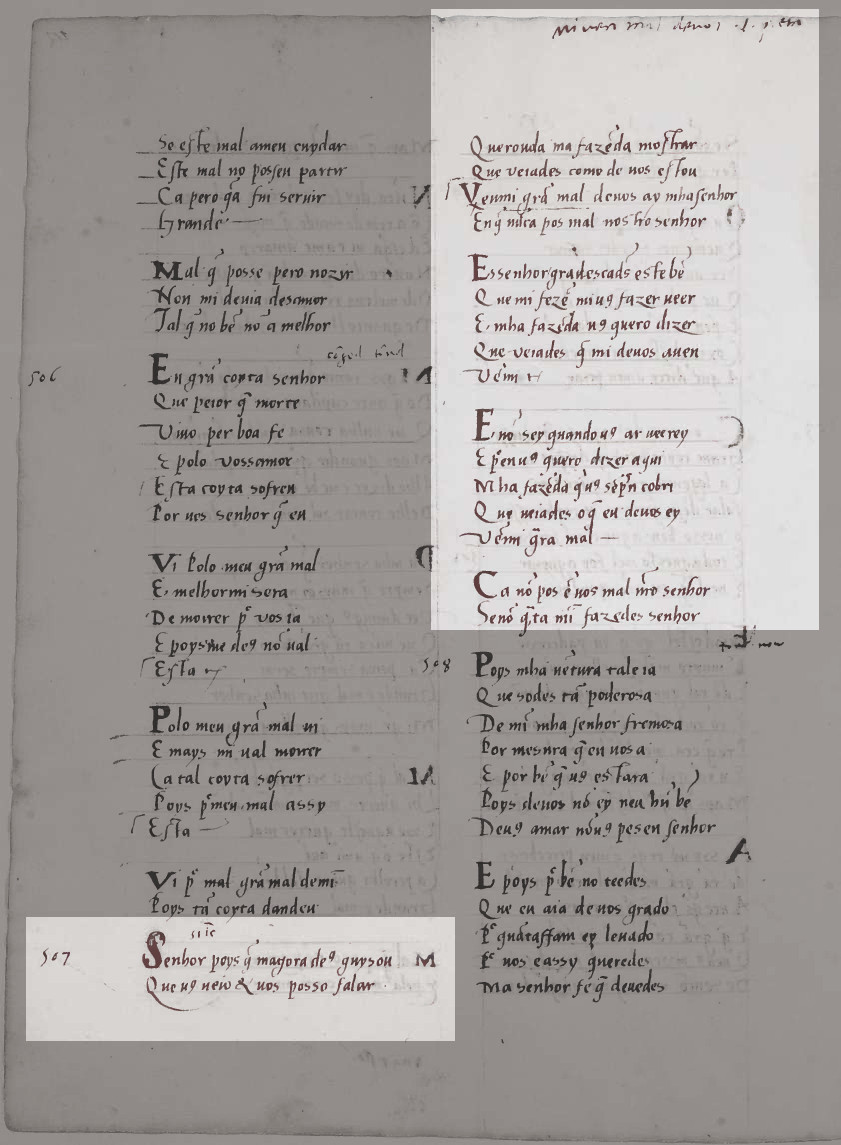 Se este mal ameu cuydar
Este mal nõ posseu partir
Ca pero q̃ fui seruir
Grande
Mal q̃ posse pero nozir
Non mi deuia desamor
Tal q̃ no bẽ no á melhor
506
En grã coyta senhor
Que peior q̃ morte
Viuo per boa fe
E polo vossamor
Esta coyta sofreu
Por uos senhor q̃ eu
Vi Polo meu grã mal
E melhor mi sera
De moirer pʳ vos ia
E poys me deꝰ nõ ual
Esta
Polo meu grã mal ui
E mays mi ual moirer
Ca tal coyta sofrer
Poys pʳ meu mal assy
Esta
Vi pʳ mal grã mal demi
Poys tã coyta dandeu
507
Senhor poys q̃ magora deꝰ guysou
Que uꝰ veio & uos posso falar
Querouda ma fazẽda mostrar
Que veiades como de uos estou
Venmi grã mal deuos ay mhasenhor
En q̃ nũca pos mal nostro senhor
Essenhor gradescads este bẽ
Que mi fezẽ miuꝰ fazer ueer
E mha fazẽda uꝰ quero dizer
Que veiades q̃ mi deuos auen
Vẽmi
E nõ sey quando uꝰ ar ueerey
E pʳen uꝰ quero dizer aqui
Mha fazẽda q̃ uꝰ sẽpʳn cobri
Que veiades o q̃ eu deuos ey
Vẽmi grã mal
Ca nõ pos ẽ uos mal nr̃o senhor
Senõ q̃ta mi fazedes senhor
508
Poys mha uẽtura tal e ia
Que sodes tã poderosa
De mi mha senhor fremosa
Por mesura q̃ en uos a
E por bẽ q̃ uꝰ estara
Poys deuos nõ ey neu hũ bẽ
Deuꝰ amar nõ uꝰ pes en senhor
E poys pʳ bẽ no teedes
Que eu aia de uos grado
Pʳ quãtaffam ey leuado
Pʳ uos cassy queredes
Ma senhor fe q̃ deuedes